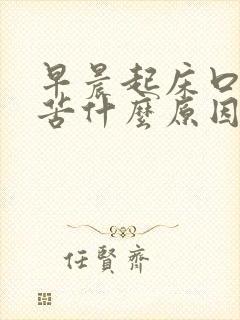 早晨起床口
苦什麼原因
任賢齊